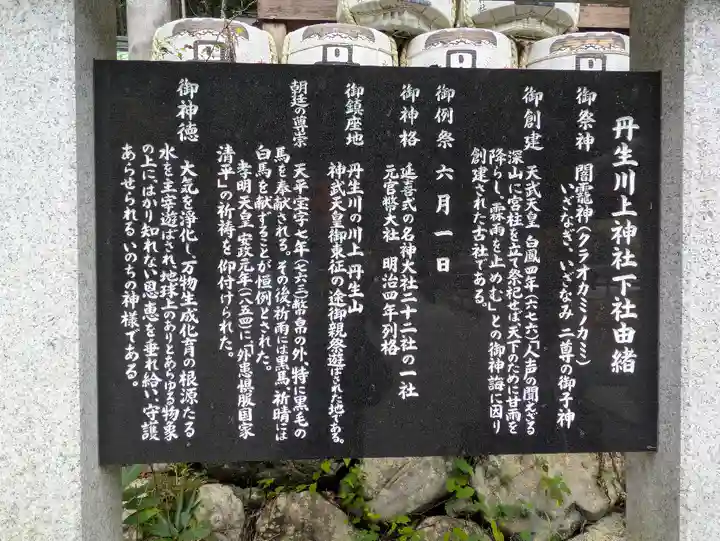 丹生川上神社下社由緒
御祭神 闇龗神(クラオカミノカミ)
いざなぎ、いざなみ 二尊の御子神
御創建 天武天皇 白鳳四年(六七六)「人声の聞えざる
深山に宮柱を立て祭祀せば、天下のために甘雨を
降らし、霖雨を止めむ」との御神誨に因り
創建された古社である。
御例祭 六月一日
御神格 延喜式の名神大社二十二社の一社
元官幣大社 明治四年列格
御鎮座地 丹生川の川上 丹生山
神武天皇御東征の途御親祭遊ばされた地である。
朝廷の尊崇 天平宝字七年(七六三)幣帛の外、特に黒毛の
馬を奉献される。その後、祈雨には黒馬、祈晴には
白馬を献ずることが恒例とされた。
孝明天皇 安政元年(一八五四)に「外患惧服国家
清平」の祈祷を仰付けられた。
御神徳 大気を浄化し、万物生成化育の根源たる
水を主宰遊ばされ、地球上のありとあらゆる物象
の上にはかり知れない恩恵を垂れ給い、守護
あらせられる いのちの神様である。